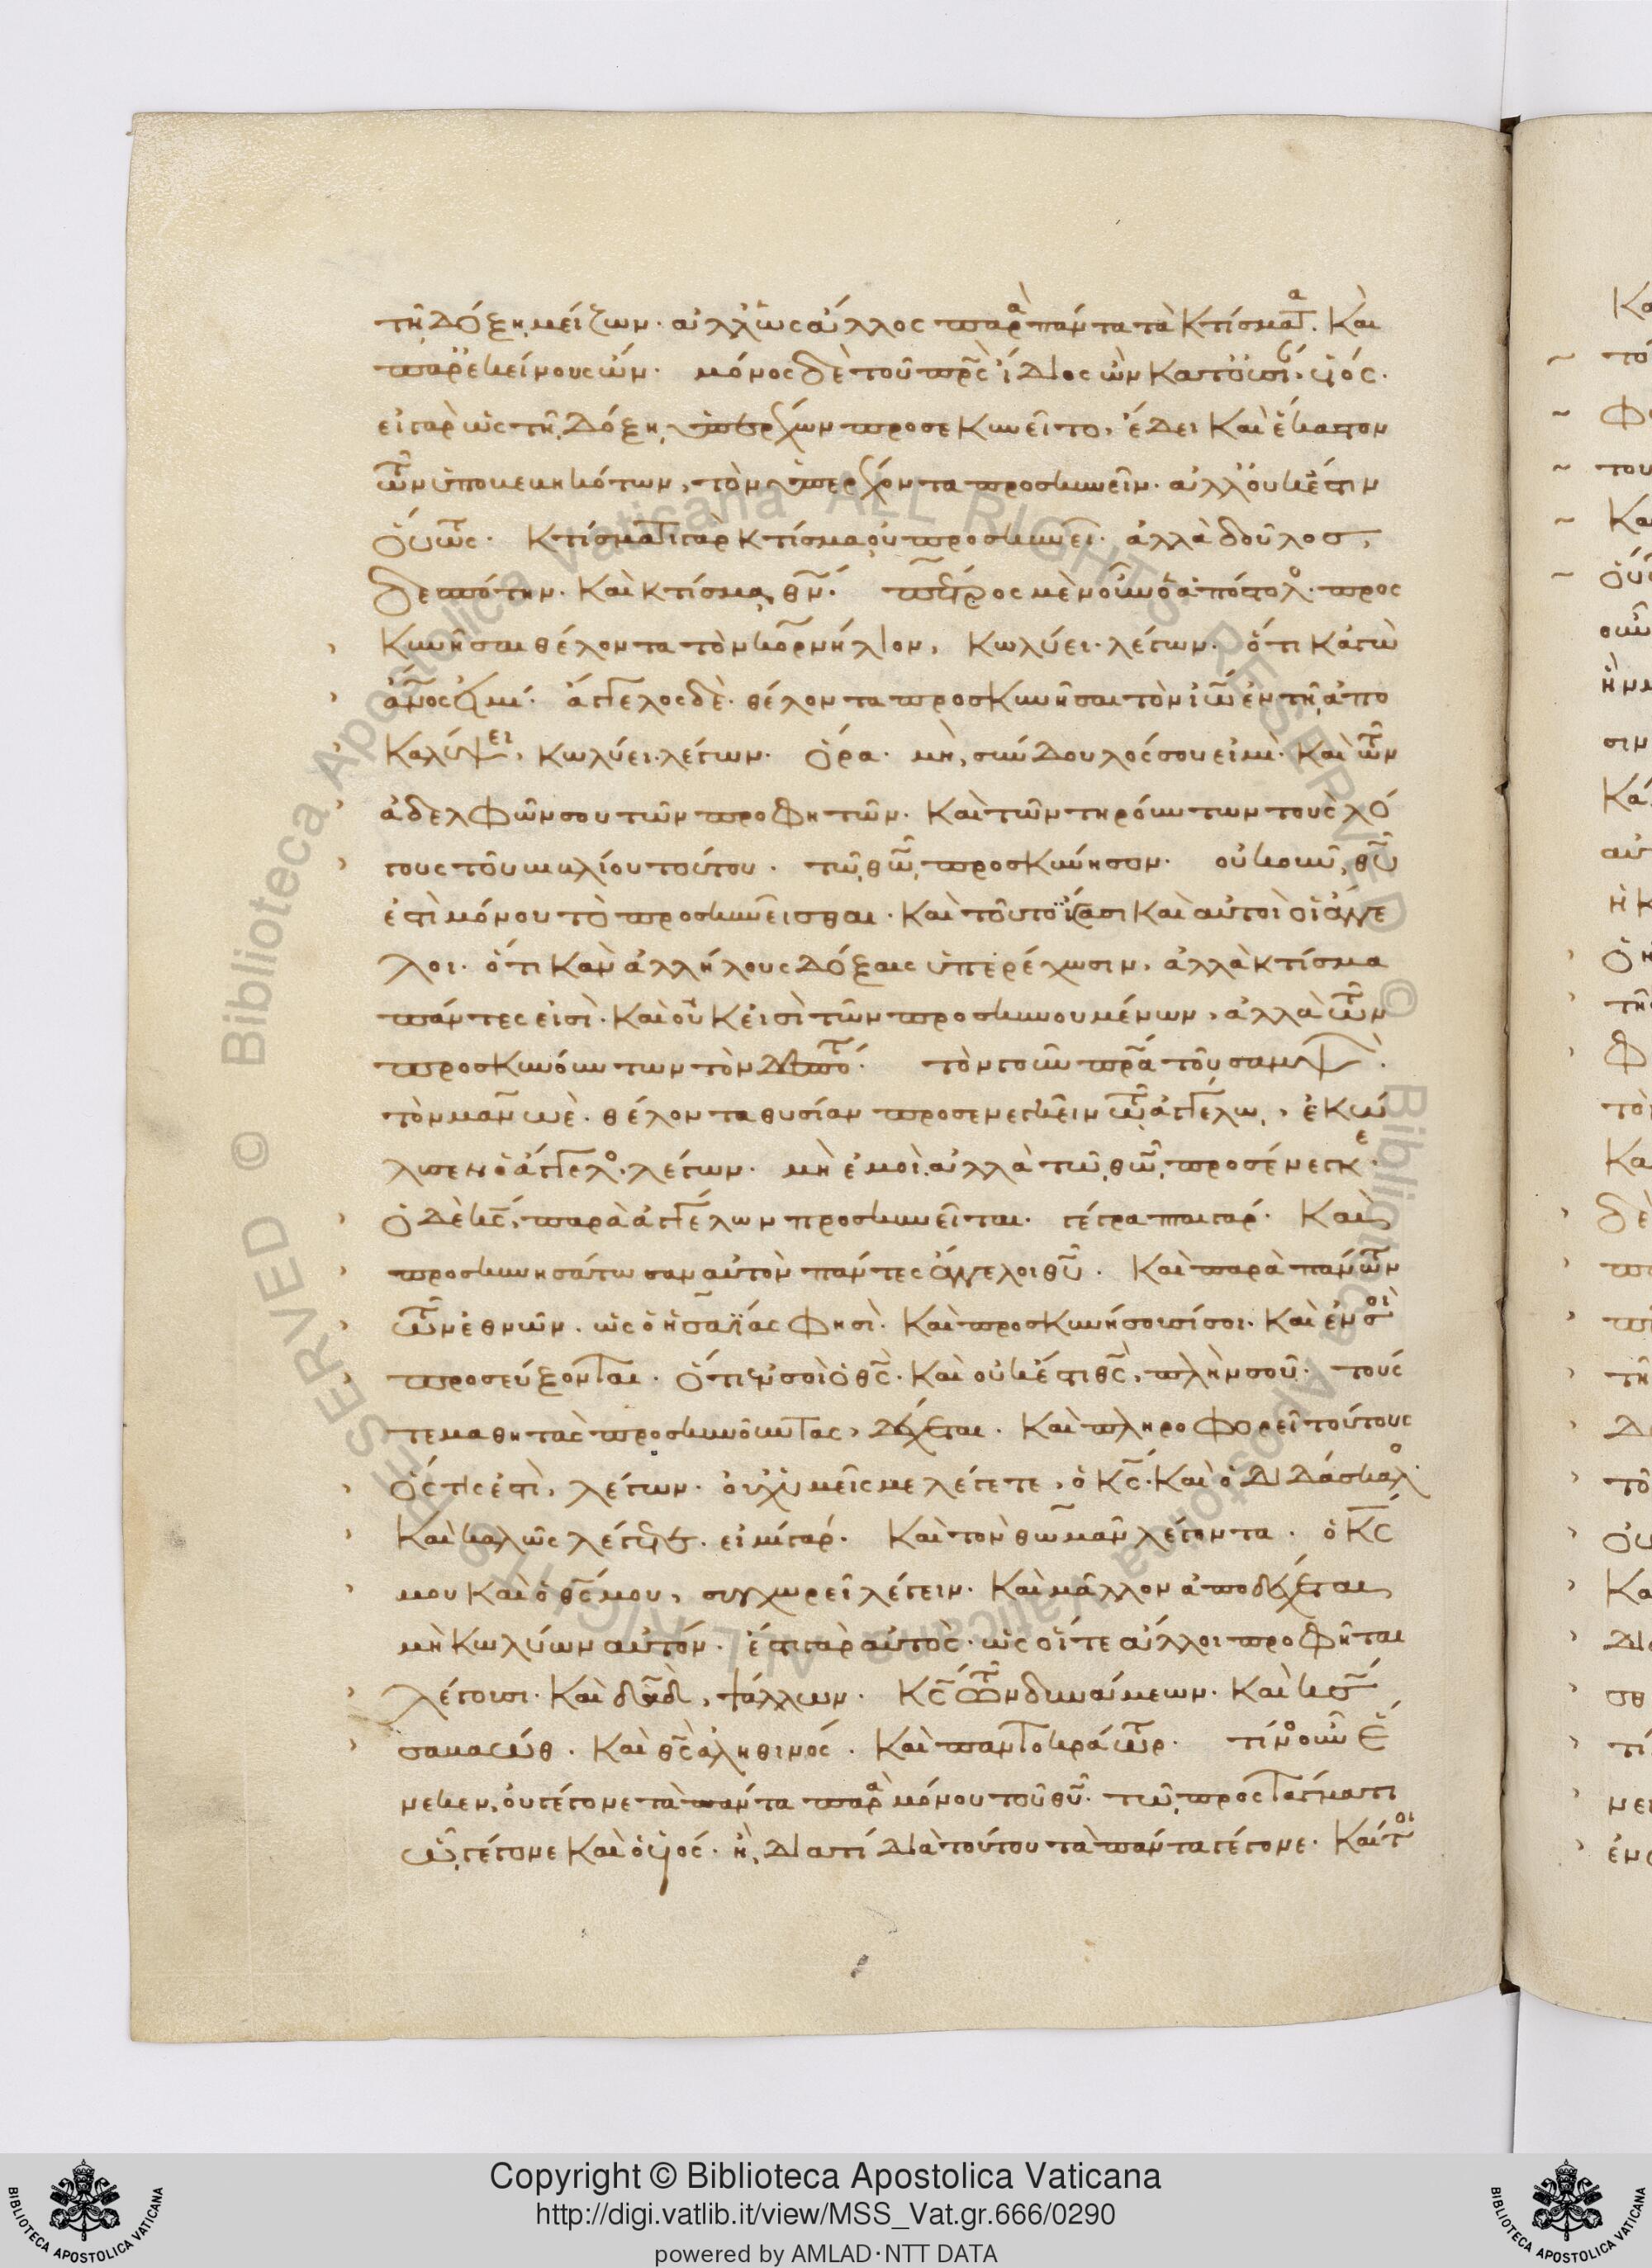 τῇ δόξῃ μείζων· ἀλλ' ὡς ἄλλος παρὰ πάντα τὰ κτίσματα· καὶ
παρ' ἐκείνους ὤν· μόνος δὲ τοῦ πρς ἴδιος ὢν κατ' οὐσίαν, υἱός·
εἰ γὰρ ὡς τῇ δόξῃ ὑπερέχων προσεκυνεῖτο, ἔδει καὶ ἕκαστον
τῶν ὑποβεβηκότων, τὸν ὑπερέχοντα προσκυνεῖν· ἀλλ' οὐκ ἔστιν
οὕτως· κτίσματι γὰρ κτίσμα οὐ προσκυνεῖ· ἀλλὰ δοῦλος,
δεσπότην· καὶ κτίσμα, θν· πέτρος μὲν οὖν ὁ ἀπόστολος· προσ
κυνῆσαι θέλοντα τὸν κορνήλιον, κωλύει λέγων· ὅτι κἀγὼ
ἄνος εἰμι· ἄγγελος δὲ θέλοντα προσκυνῆσαι τὸν ἰω ἐν τῇ ἀπο
καλύψει, κωλύει λέγων· ὅρα μὴ, σύνδουλός σου εἰμὶ· καὶ τῶν
ἀδελφῶν σου τῶν προφητῶν· καὶ τῶν τηρούντων τοὺς λό
γους τοῦ βιβλίου τούτου· τῷ θω προσκύνησον· οὐκοῦν, θυ
ἐστὶ μόνου τὸ προσκυνεῖσθαι· καὶ τοῦτο ἴσασι καὶ αὐτοὶ οἱ ἄγγε
λοι· ὅτι κἂν ἀλλήλους δόξαις ὑπερέχωσιν, ἀλλὰ κτίσμα
πάντες εἰσὶ· καὶ οὐκ εἰσὶ τῶν προσκυνουμένων, ἀλλὰ τῶν
προσκυνούντων τὸν δεσπότ· τὸν γοῦν πρα τοῦ σαμψὼ·
τὸν μανωὲ· θέλοντα θυσίαν προσενεγκεῖν τῷ ἀγγέλῳ, ἐκώ
λυσεν ὁ ἄγγελος λέγων· μὴ ἐμοὶ· ἀλλὰ τῷ θω προσένεγκε·
ὁ δὲ κς, παρὰ ἀγγέλων προσκυνεῖται· γέγραπται γάρ· καὶ
προσκυνησάτωσαν αὐτὸν πάντες ἄγγελοι θυ· καὶ παρὰ πάντων
τῶν ἐθνῶν· ὡς ὁ ἡσαΐας φησὶ· καὶ προσκυνήσουσί σοι· καὶ ἐν σοὶ
προσεύξονται· ὅτι ἐν σοὶ ὁ θς· καὶ οὐκ ἔστι θς, πλὴν σοῦ· τούς
τε μαθητὰς προσκυνοῦντας, δέχεται· καὶ πληροφορεῖ τούτους
ὅστις ἐστὶ, λέγων· οὐχ ὑμεῖς με λέγετε, ὁ κς· καὶ ὁ διδάσκαλος·
καὶ καλῶς λέγετε· εἰμὶ γάρ· καὶ τὸν θωμᾶν λέγοντα· ὁ κς
μου καὶ ὁ θς μου, συγχωρεῖ λέγειν· καὶ μᾶλλον ἀποδέχεται
μὴ κωλύων αὐτόν· ἔστι γὰρ αὐτὸς· ὡς οἵ τε ἄλλοι προφῆται
λέγουσι· καὶ δαδ, ψάλλων· κς τῶν δυνάμεων· καὶ κς
σαβαώθ· καὶ θς ἀληθινός· καὶ παντοκράτωρ· τίνος οὖν ἕ
νεκεν, οὐ γέγονε τὰ πάντα παρὰ μόνου τοῦ θυ τῷ προστάγματι
ᾧ γέγονε καὶ ὁ υἱός· ἢ, διατί διὰ τούτου τὰ πάντα γέγονε· καίτοι